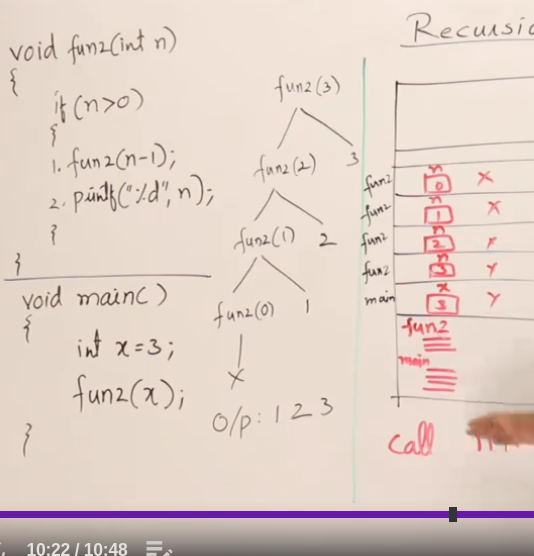 void fun2(int n)
{
if (n>0)
{
1. fun2(n-1);
2. printf("%d", n);
}
}
void main()
{
int x=3;
fun2(x);
}
fun2(3)
fun2(2) 3
fun2(1) 2
fun2(0) 1
X
O/p: 1 2 3
Recursio
n
fun2 0 X
n
fun2 1 X
n
fun2 2 x
n
fun2 3 Y
x
main 3 Y
fun2
main
Call
10:22 / 10:48